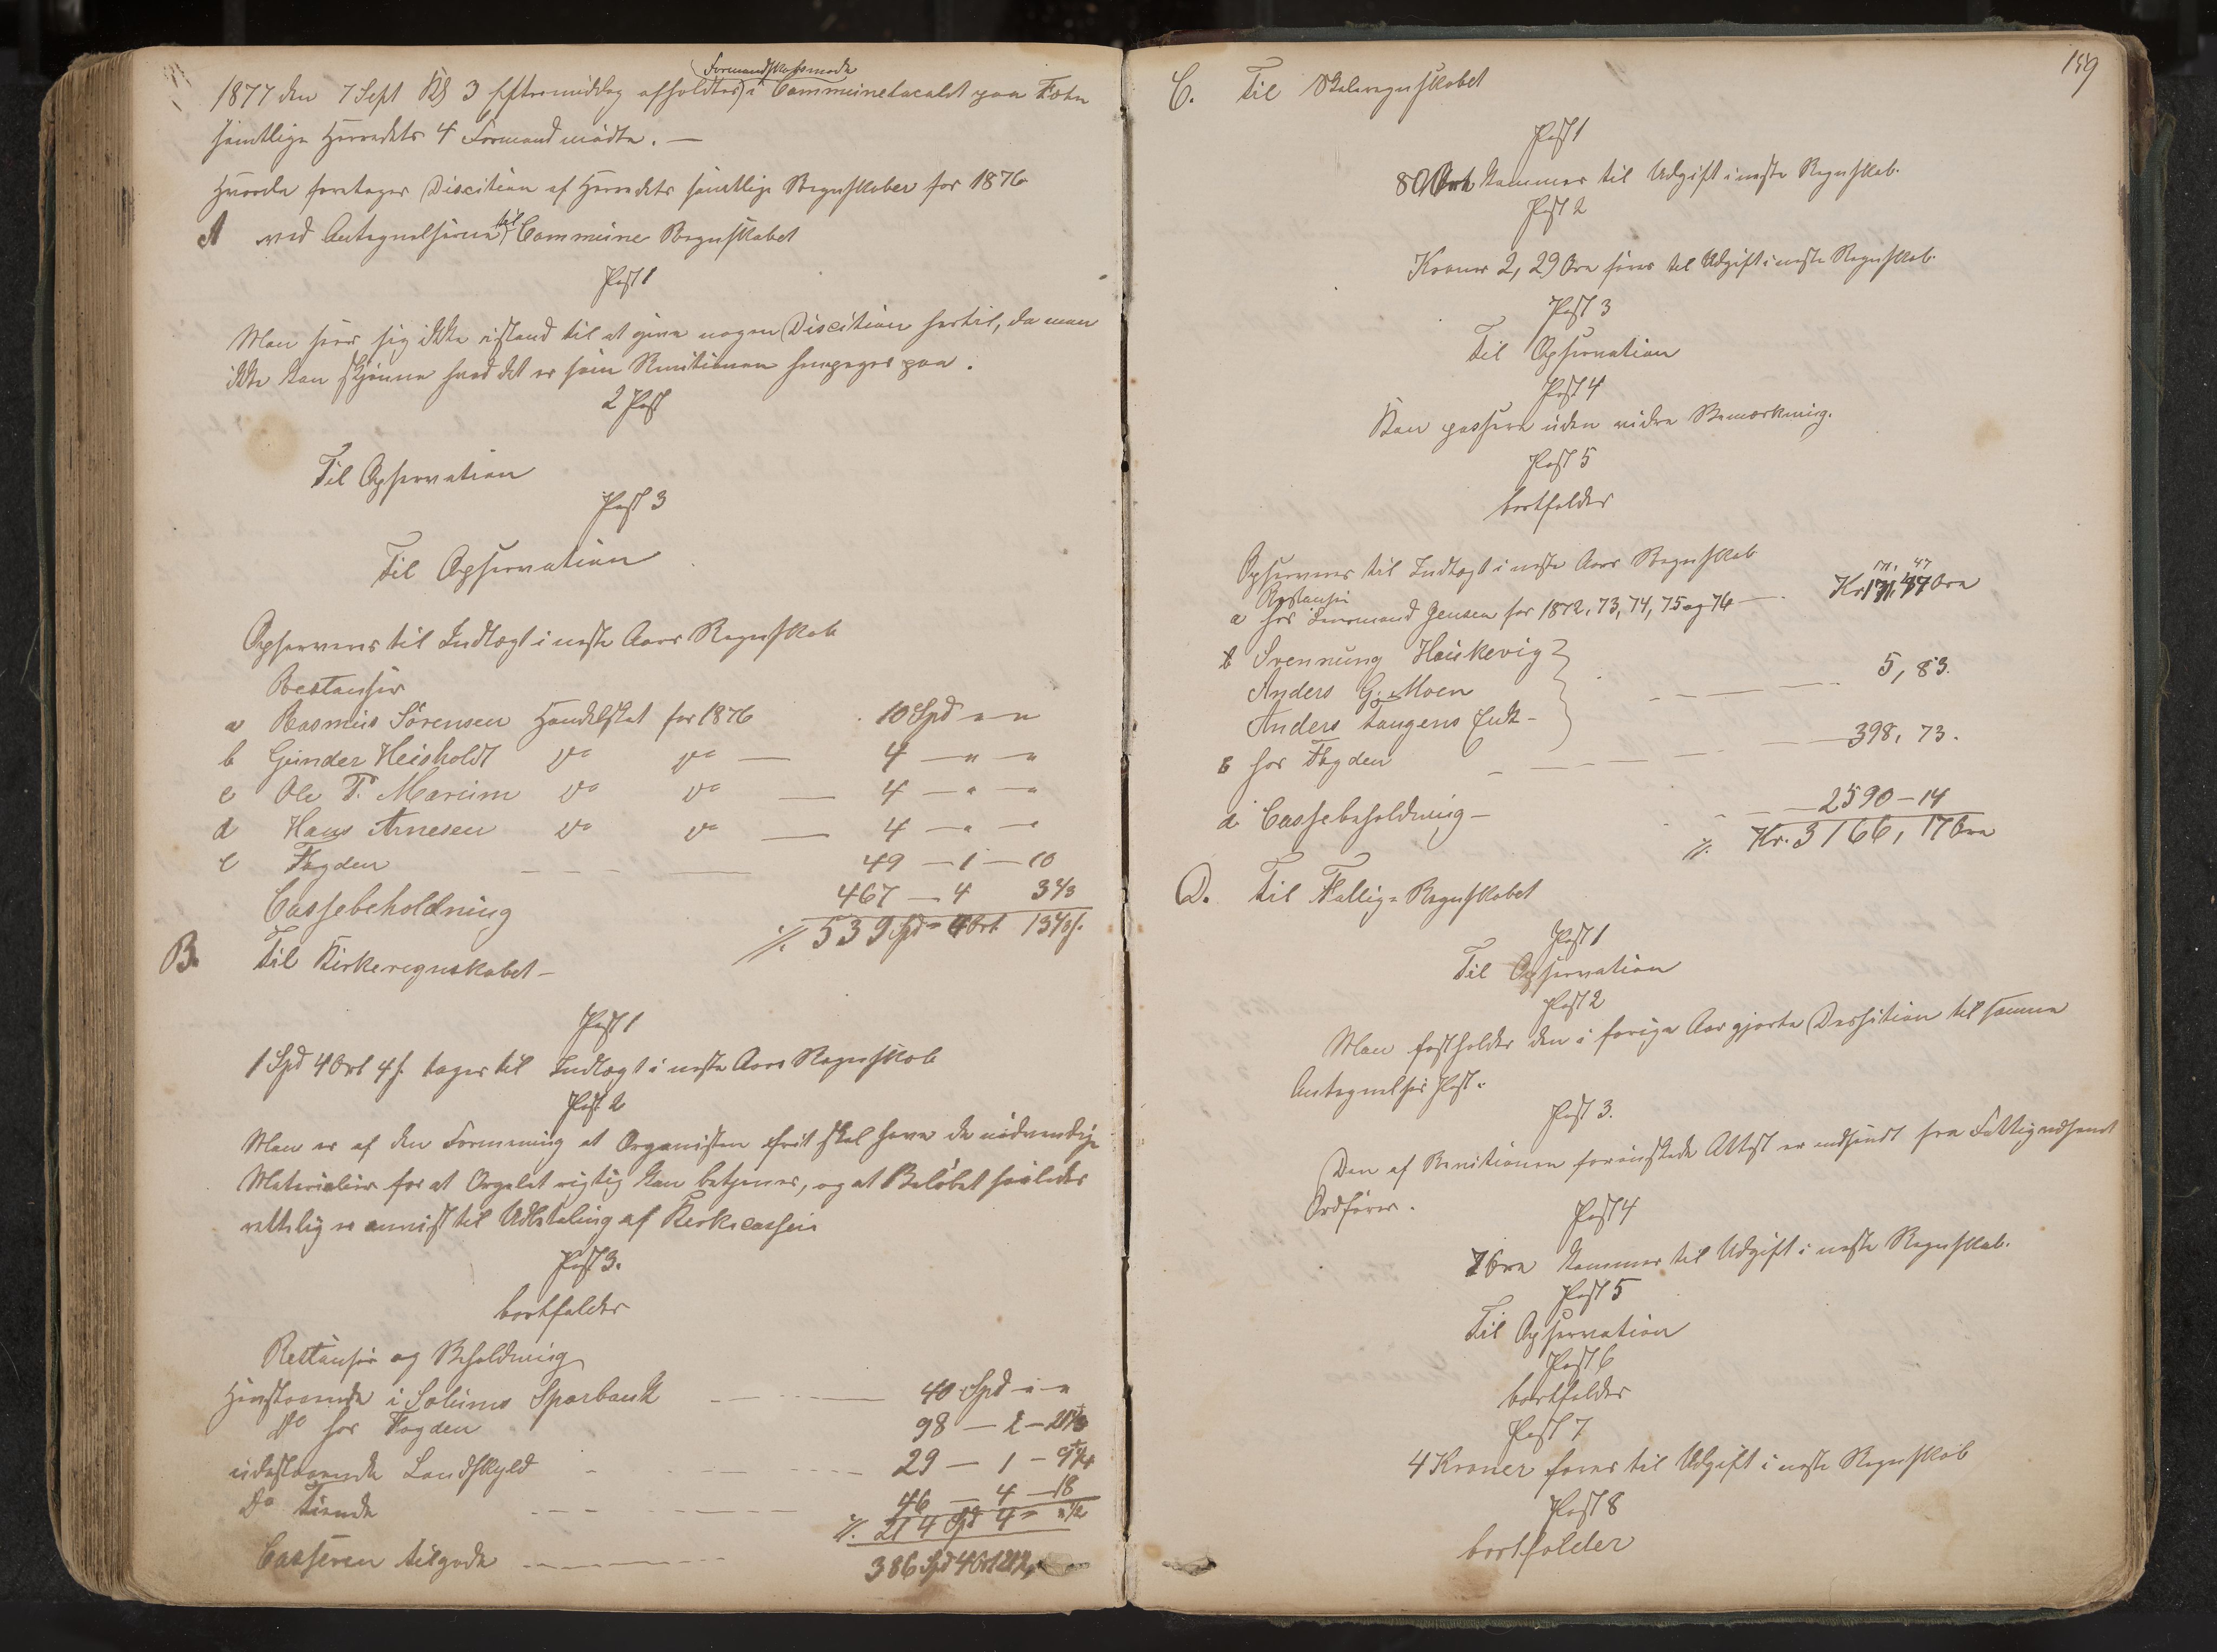 Formandskabsmøde
1877 den 7 Sept Kl 3 Eftermiddag afholdtes i Communelocalet paa Foln
samtlige Herredets 4 Formænd mødte. —
Hvorda foretages Discition af Herredets samtlige Regnskaber for 1876
A ved Antegnelserne til Commune Regnskabet
Post 1
Man seer sig ikke istand til at give nogen Discition hertil, da man
ikke kan skjønne hvad det er som Revisionen henpeger paa.
2 Post
Til Opservation
Post 3
Til Opservation
Opserveres til Indtægt i neste Aars Regnskab
Restanser
a Rasmus Sörensen Handelskat for 1876 10 Spd " "
b Gunder Heisholdt do do — 4 — " — "
c Ole T. Marum do do — 4 — " — "
d Hans Arnesen do do — 4 — " — "
e Fogden 49 — 1 — 10
Cassebeholdning 467 — 4 3 1/3
./. 539 Spd = 4 Ort 13 1/3 s.
B. Til Kirkeregnskabet —
Post 1
1 Spd 4 Ort 4 s. tages til Indtægt i neste Aars Regnskab
Post 2
Man er af den Formening at Organisten frit skal have de nødvendige
Materialier for at Orgelet rigtig kan betjenes, og at Beløbet saaledes
rettelig er anvist til Udbetaling af Kirkecassen
Post 3.
bortfalder
Restanser og Beholdning
Henstaaende i Solums Sparbank 40 Spd " "
do hos Fogden 98 — 2 —
udestaaende Landskyld 29 — 1 —
do Tiende 46 — 4 — 18
./. 214 Spd 4 =
Casseren tilgode 386 Spd 4 Ort
159
C. Til Skoleregnskabet
Post 1
80 Øre kommer til Udgift i neste Regnskab.
Post 2
Kroner 2, 29 Øre føres til Udgift i neste Regnskab.
Post 3
Til Opservation
Post 4
Kan passere uden vidre Bemærkning.
Post 5
bortfalder
Opserveres til Indtægt i neste Aars Regnskab
Restanser
171, 47
a hos Lensmand Jensen for 1872, 73, 74, 75 og 76 — Kr 171, 47 Øre
b Svennung Haukevig
Anders G. Moen 5, 83.
Anders Tangens Enk —
c hos Fogden 398, 73.
d Cassebeholdning — 2590 — 14
./. Kr. 3166, 17 Øre
D. Til Fattig-Regnskabet
Post 1
Til Opservation
Post 2
Man fastholder den i forige Aar gjorte Dessition til samme
Antegnelses Post.
Post 3.
Den af Revisionen forønskede Attest er indsendt fra Fattigvæsenet
Ordfører.
Post 4
7 Øre kommer til Udgift i neste Regnskab.
Post 5
Til Opservation
Post 6
bortfalder
Post 7
4 Kroner føres til Udgift i neste Regnskab
Post 8
bortfalder